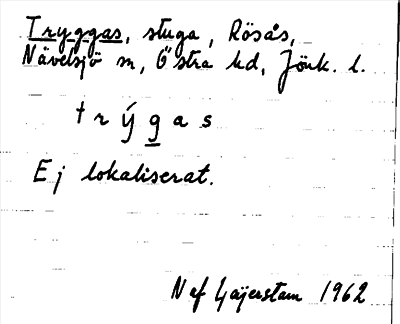 Tryggas, stuga, Rösås,
Nävelsjö sn, Östra hd, Jönk. l.
trýgas
Ej lokaliserat.
N af Gaijerstam 1962